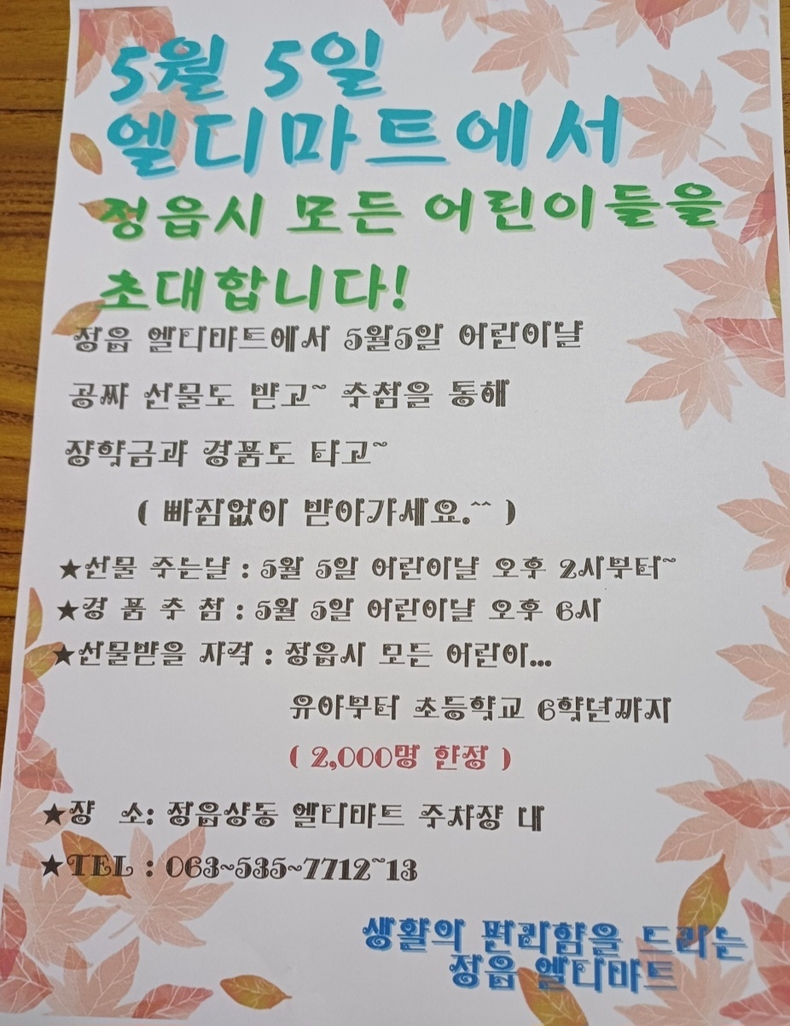 5월 5일
엘디마트에서
정읍시 모든 어린이들을
초대합니다!
정읍 엘디마트에서 5월5일 어린이날
공짜 선물도 받고~ 추첨을 통해
장학금과 경품도 타고~
( 빠짐없이 받아가세요.^^ )
★선물 주는날 : 5월 5일 어린이날 오후 2시부터~
★경 품 추 첨 : 5월 5일 어린이날 오후 6시
★선물받을 자격 : 정읍시 모든 어린이...
유아부터 초등학교 6학년까지
( 2,000명 한정 )
★장 소: 정읍상동 엘디마트 주차장 내
★TEL : 063~535~7712~13
생활의 편리함을 드리는
정읍 엘디마트